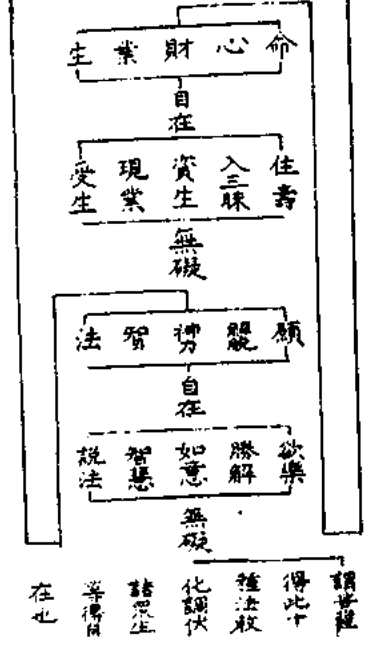 命
心
財
業
生
自在
住壽
入三昧
資生
現業
受生
無礙
願
解脫
神力
智
法
自在
欲樂
勝解
如意
智慧
說法
無礙
謂菩薩
得此十
種法故
化調伏
諸眾生
等得自
在也